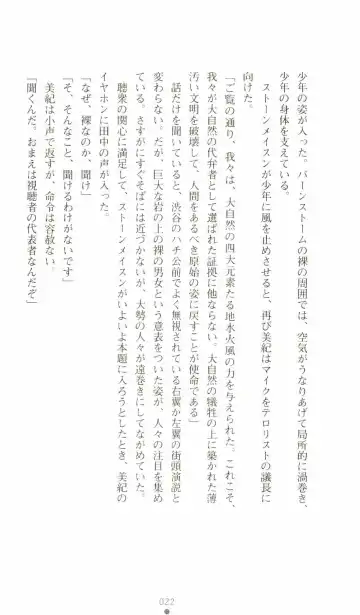 少年の姿が入った。バーンストームの裸の周囲では、空気がうなりあげて局所的に渦巻き、
少年の身体を支えている。
ストーンメイスンが少年に風を止めさせると、再び美紀はマイクをテロリストの議長に
向けた。
「ご覧の通り、我々は、大自然の四大元素たる地水火風の力を与えられた。これこそ、
我々が大自然の代弁者として選ばれた証拠に他ならない。大自然の犠牲の上に築かれた薄
汚い文明を破壊して、人間をあるべき原始の姿に戻すことが使命である」
話だけを聞いていると、渋谷のハチ公前でよく無視されている右翼か左翼の街頭演説と
変わらない。だが、巨大な岩の上の裸の男女という意表をついた姿が、人々の注目を集め
ている。さすがにすぐそばには近づかないが、大勢の人々が遠巻きにしてながめていた。
聴衆の関心に満足して、ストーンメイスンがいよいよ本題に入ろうとしたとき、美紀の
イヤホンに田中の声が入った。
「なぜ、裸なのか、聞け」
「そ、そんなこと、聞けるわけがないです」
美紀は小声で返すが、命令は容赦ない。
「聞くんだ。おまえは視聴者の代表者なんだぞ」
022